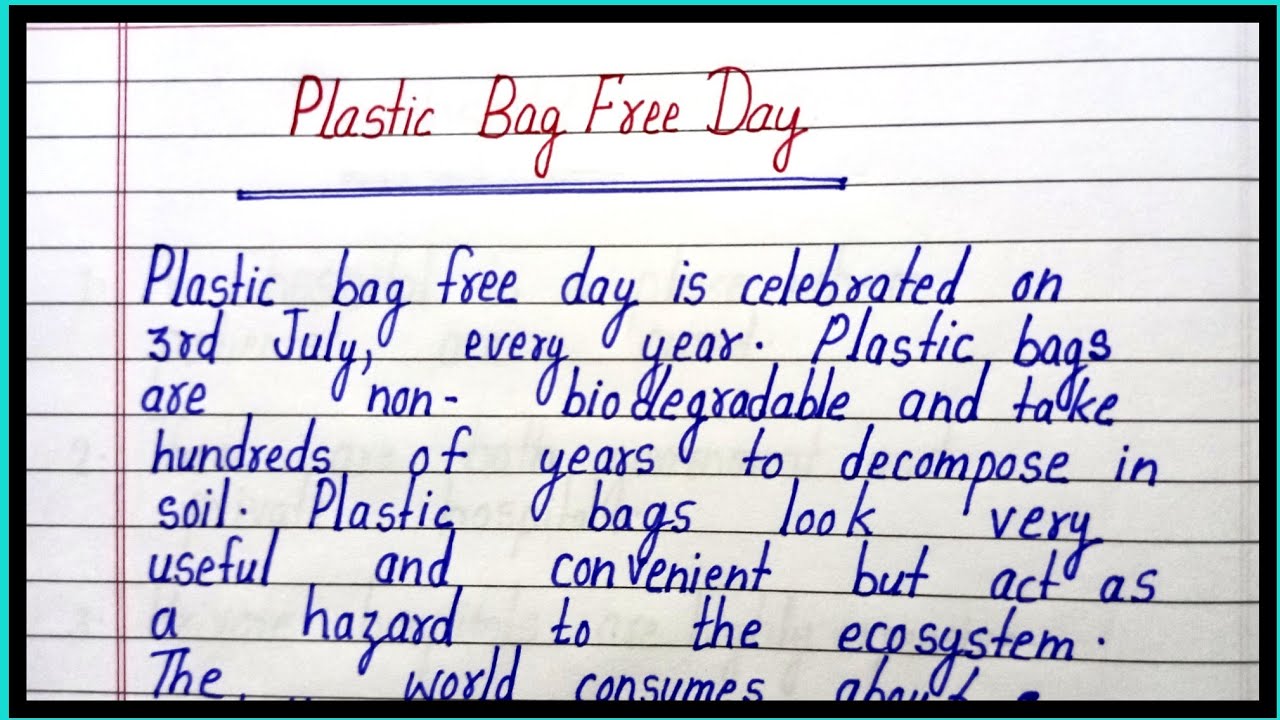 Plastic Bag Free Day
Plastic bag free day is celebrated on
3rd July, every year. Plastic bags
are non- biodegradable and take
hundreds of years to decompose in
soil. Plastic bags look very
useful and convenient but act as
a hazard to the ecosystem.
The world consumes about